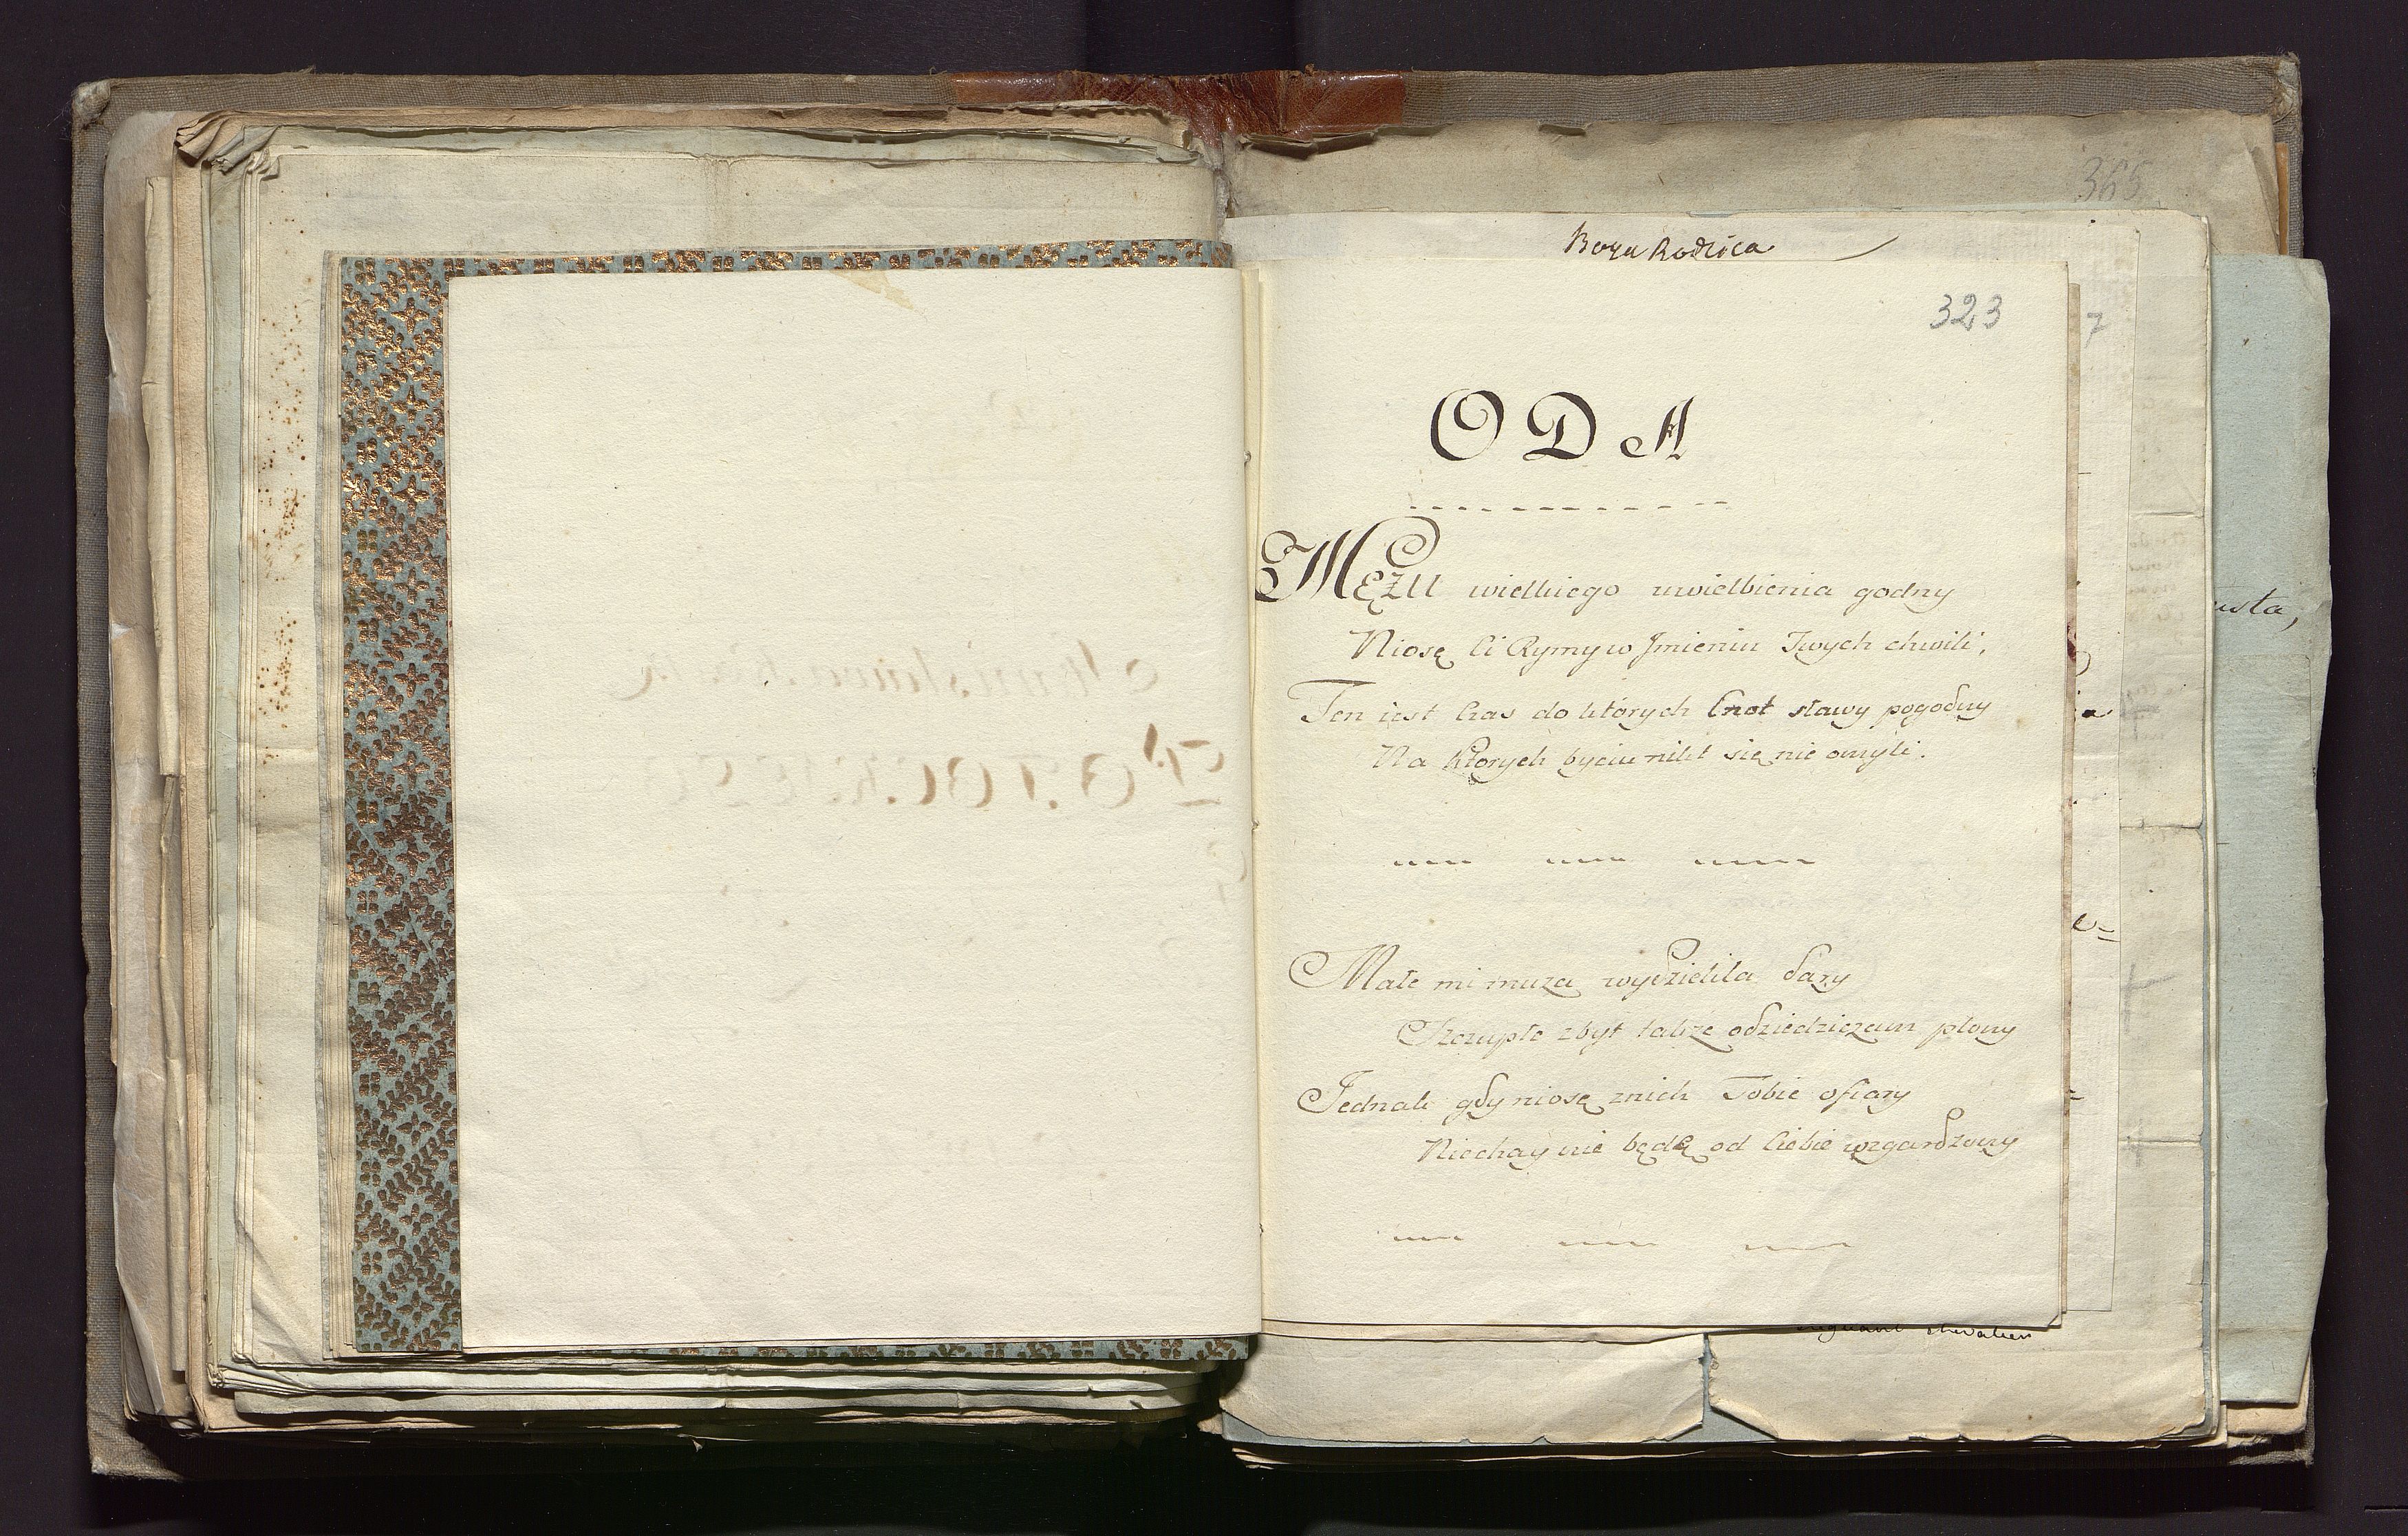 365
Boga Rodzica
323
7
ODA
MĘżu wielkiego uwielbienia godny
Niosę Ci Rymy w Jmieniu Twych chwili,
Ten iest Czas do których Cnot sławy pogodny
Na których byciu nikt się nie omyli.
Małe mi muza wydzieliła dary
Szczupłe zbyt także odziedziczam plony
Jednak gdy niosę znich Tobie ofiary
Niechay nie będę od Ciebie wzgardzony
usta,